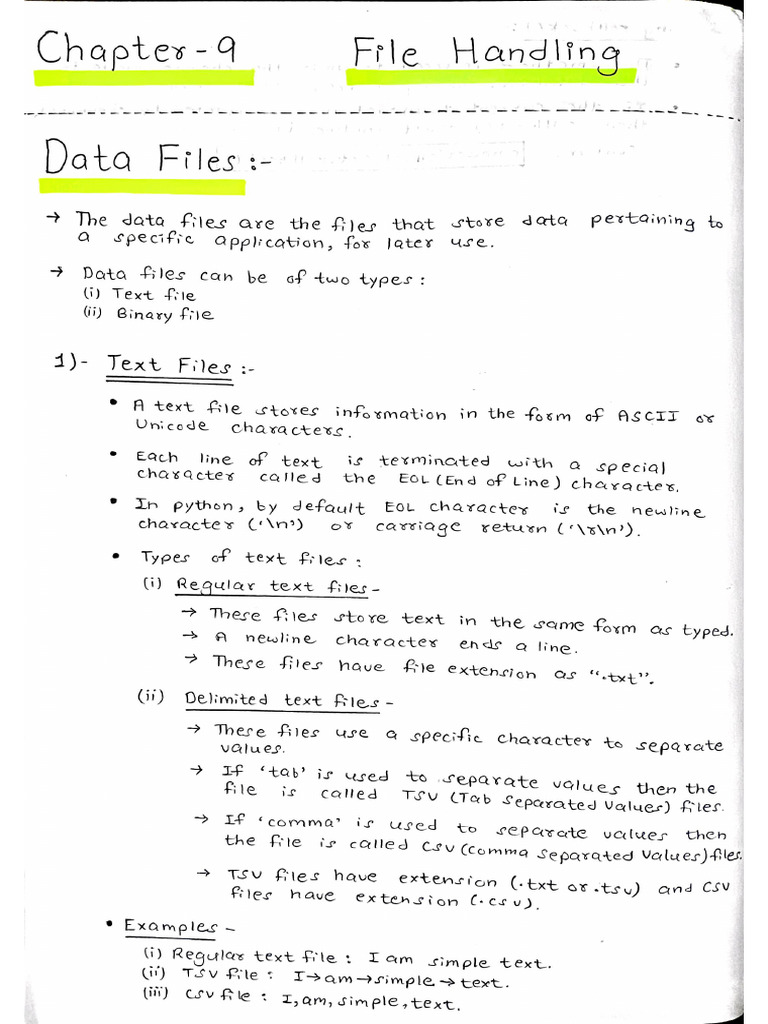 Chapter-9 File Handling
Data Files :-
→ The data files are the files that store data pertaining to
a specific application, for later use.
→ Data files can be of two types :
(i) Text file
(ii) Binary file
1)- Text Files :-
• A text file stores information in the form of ASCII or
Unicode characters.
• Each line of text is terminated with a special
character called the EOL (End of Line) character.
• In python, by default EOL character is the newline
character ('\n') or carriage return ('\r\n').
• Types of text files :
(i) Regular text files -
→ These files store text in the same form as typed.
→ A newline character ends a line.
→ These files have file extension as ".txt".
(ii) Delimited text files -
→ These files use a specific character to separate
values.
→ If 'tab' is used to separate values then the
file is called TSV (Tab Separated Values) files.
→ If 'comma' is used to separate values then
the file is called CSV (Comma Separated Values) files.
→ TSV files have extension (.txt or .tsv) and CSV
files have extension (.csv).
• Examples -
(i) Regular text file : I am simple text.
(ii) TSV file : I→am→simple→text.
(iii) CSV file : I, am, simple, text.